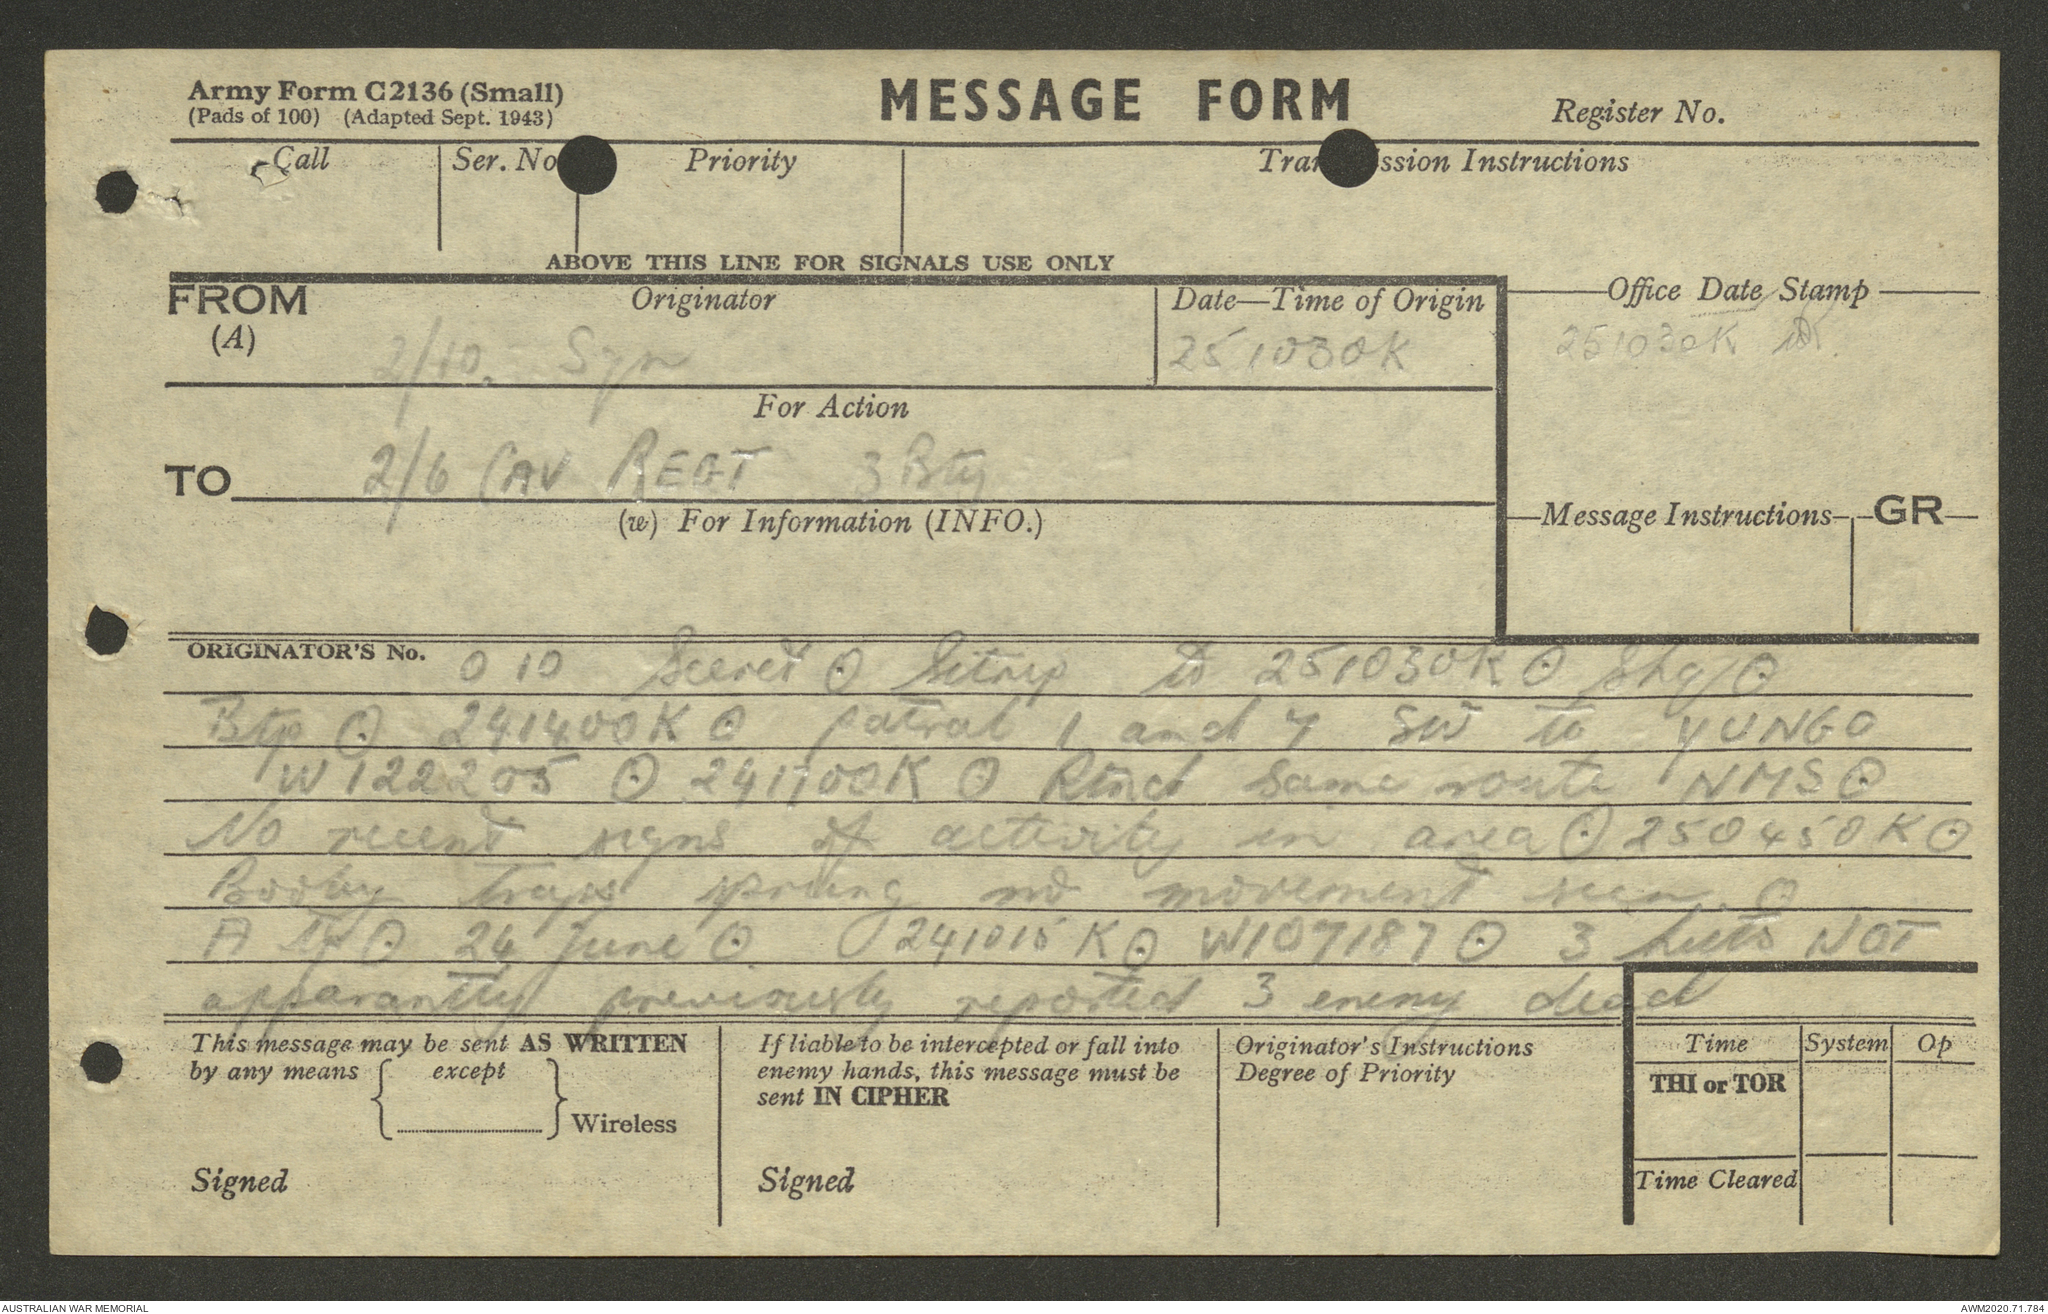 Army Form C2136 (Small)
(Pads of 100) (Adapted Sept. 1943)
MESSAGE FORM
Register No.
Call
Ser. No
Priority
Tran ssion Instructions
ABOVE THIS LINE FOR SIGNALS USE ONLY
FROM
(A)
Originator
2/10.
Date—Time of Origin
251030K
Office Date Stamp
251030K
For Action
TO
2/6 CAV REGT 3 Bty
(w) For Information (INFO.)
Message Instructions
GR
ORIGINATOR'S No. 010 Secret ⊙ Sitrep to 251030K ⊙
⊙ 241400K ⊙ patrol 1 and 7 SW to YUNGO
W122205 ⊙ 241700K ⊙ same route NMS ⊙
No recent signs of activity in area ⊙ 250450K ⊙
Booby traps sprung no movement seen ⊙
A Tp ⊙ 24 June ⊙ 241015K ⊙ W107187 ⊙ 3 huts NOT
apparantly previously reported 3 enemy dead
This message may be sent AS WRITTEN
by any means except
Wireless
Signed
If liable to be intercepted or fall into
enemy hands, this message must be
sent IN CIPHER
Signed
Originator's Instructions
Degree of Priority
Time System Op
THI or TOR
Time Cleared
AUSTRALIAN WAR MEMORIAL
AWM2020.71.784